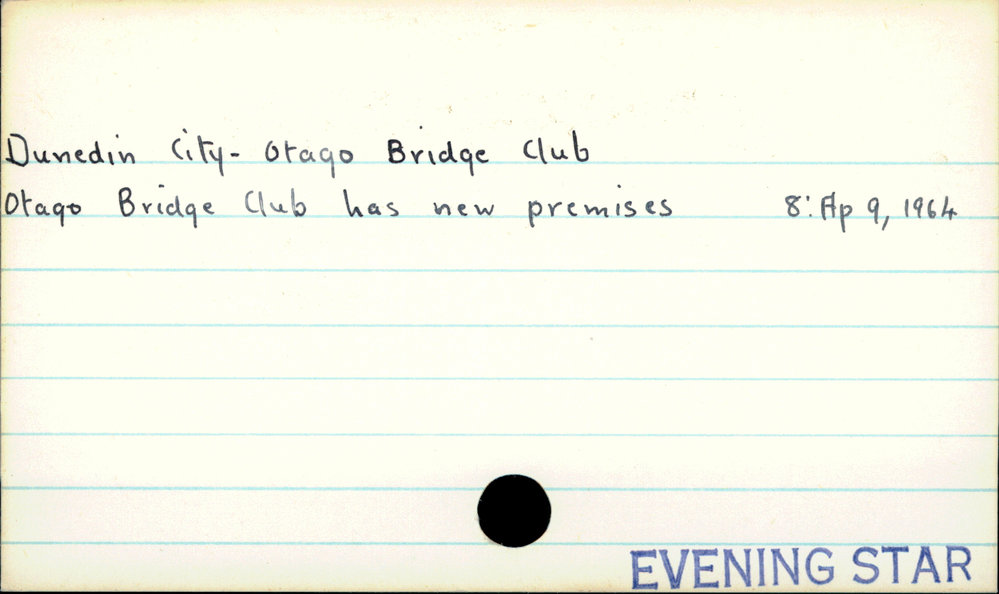 Dunedin City- Otago Bridge Club
Otago Bridge Club has new premises 8: Ap 9, 1964
EVENING STAR